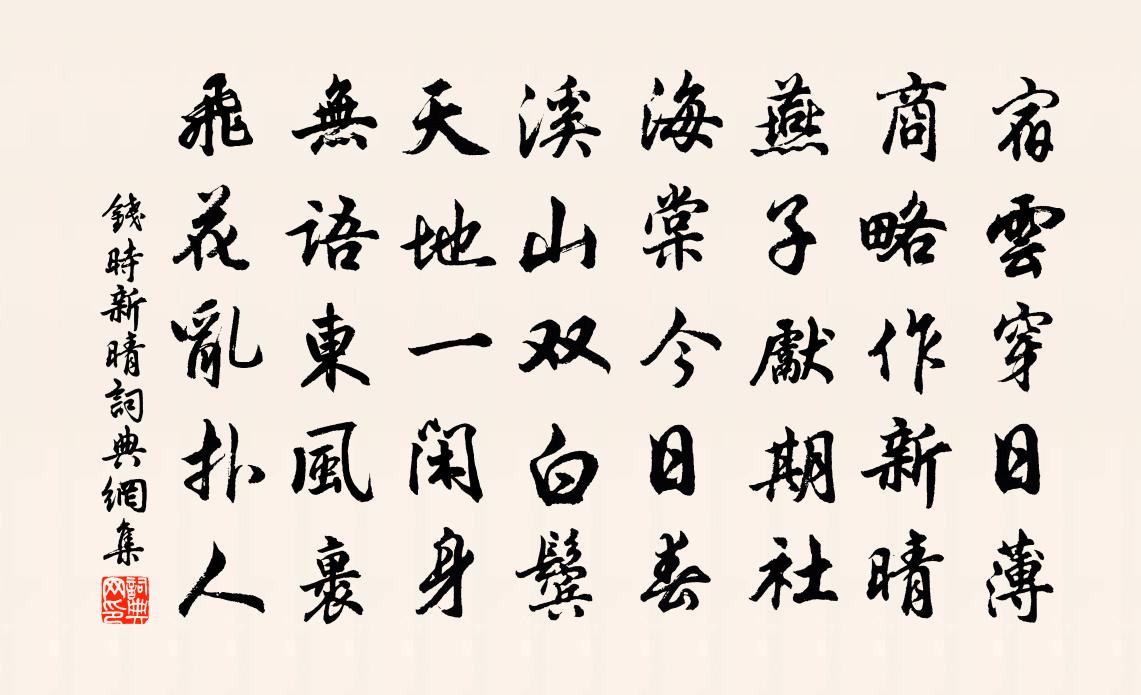 宿雲穿日薄
商略作新晴
燕子獻期社
海棠今日春
溪山双白鬢
天地一閑身
無語東風裏
飛花亂扑人
錢時新晴詞典網集
詞典网印